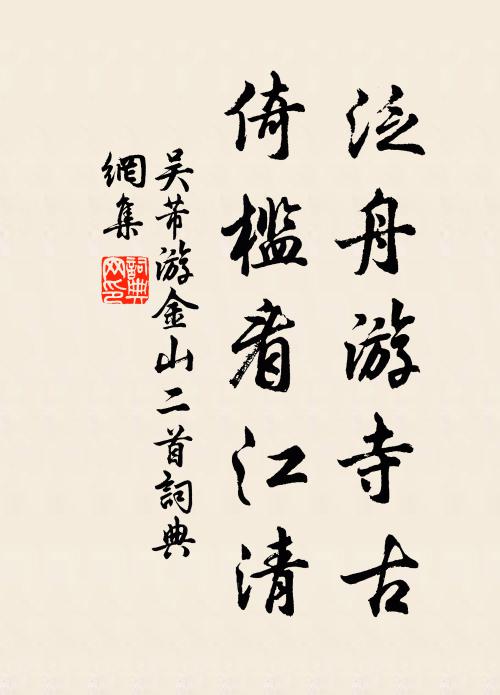 泛舟游寺古
倚槛看江清
吴芾游金山二首詞典
網集
詞典
网印